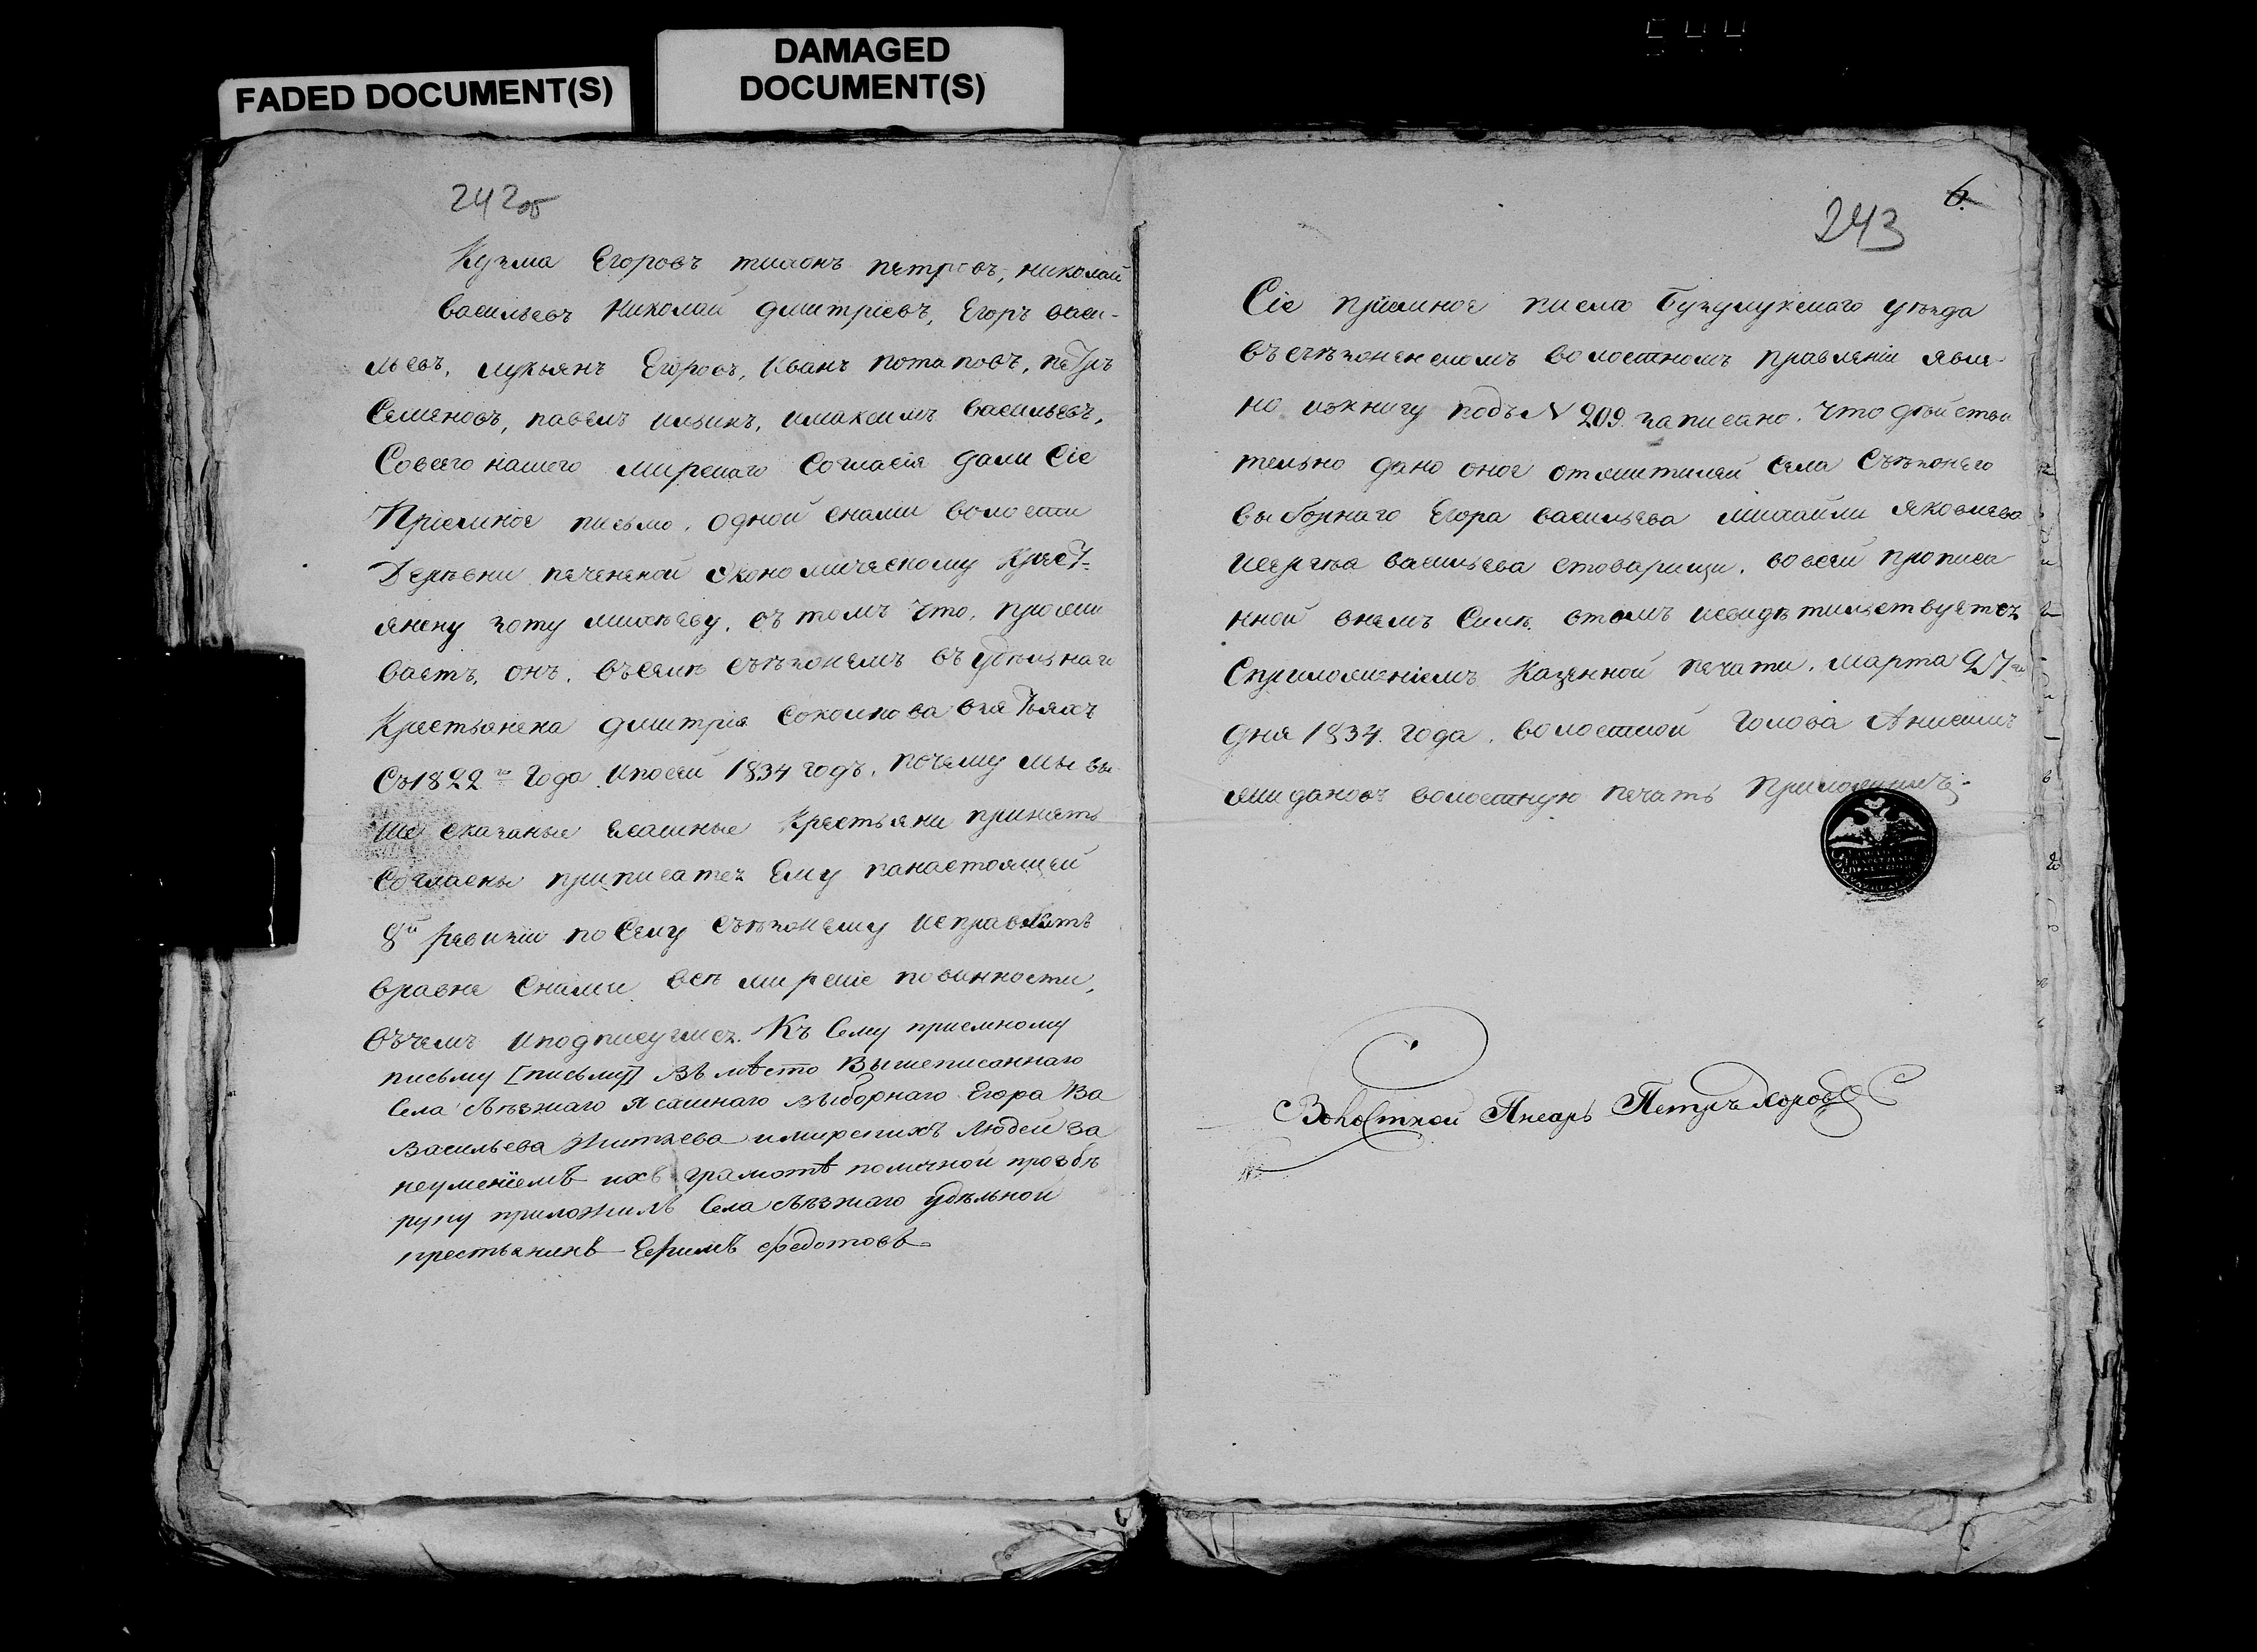 FADED DOCUMENT(S)
DAMAGED
DOCUMENT(S)
242об
Кузма Егоровъ тихонъ петровъ, николай
васильевъ Николай дмитріевъ, Егоръ васи-
льевъ, лукьянъ Егоровъ, Иванъ потаповъ, пётръ
Семеновъ, павелъ ильинъ, имаксимъ васильевъ,
Совсего нашего мирскаго Согласія дали Сіе
Пріемное письмо, одной снами волости
Деревни печенской Экономическому Крест-
янену зоту михѣеву, въ томъ что, прожи
ваетъ, онъ, въселѣ съѣзжемъ въ удѣльнаго
Крестьянена дмитрія соколкова взятьяхъ
Съ1822го Года, Ипосей 1834 годъ, почему мы вы
ше сказаные Ясашные Крестьяни принять
Согласны приписатсъ Ему панастоящей
8й ревизіи поСелу съѣзжему исправлять
вравне Снами всѣ мирскіе повинности,
въчемъ Иподписуемсъ. Къ Сему приемному
письму [письму] Въ мѣсто Вышеписаннаго
Села Съѣзжаго Ясашнаго выборнаго Егора Ва
Васильева Житяева имирскихъ людей за
неуменіемъ ихъ грамотѣ поличной прозбѣ
руку приложилъ Села Съѣзжаго удѣльной
крестьянинъ Ефимъ Федотовъ
6.
243
Сіе пріемное писмо Бузулукскаго уѣзда
въсъѣзженскомъ волостномъ правленіи явле
но ивкнигу подъ N 209. записано. что дѣйстви
тельно дано оное отжителей села Съѣзжего
выборнаго Егора васильева михайлы яковлева
исергѣя васильева стоварищи, вовсей прописа
нной внемъ Силѣ. втомъ исвидѣтильствуетсъ
Сприложеніемъ Казенной печати. марта 27го
дня 1834. года. волостной Голова Анисимъ
волостную печать Приложилъ.
Волостной Писарь Петръ